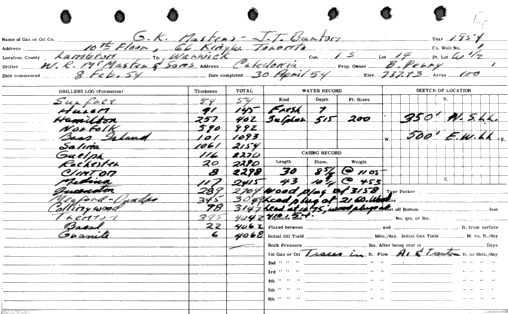 Name of Gas or Oil Co. G.K. Masters - J.T. Barton Year 1954
Address 10th Floor, 66 King W Toronto Co. Well No. 1
Location, County Lambton Tp. Warwick Con. 1 S Lot 14 Pt. Lot W 1/2
Driller W.R. McMaster & Sons Address Caledonia Prop. Owner B. Penny
Date commenced 8 Feb. 54 Date completed 30 April 54 Elev. Acres 100
DRILLERS LOG (Formation) Thickness TOTAL WATER RECORD SKETCH OF LOCATION
Kind Depth Pt. Rises N.
Surface 54 54
91 145 Fresh
Hamilton 257 402 Sulphur 515 200 950' N.S.LL.
Norfolk 590 992 500' E.W.LL.
Bass Island 101 1093 W. E.
Salina 1061 2154
Guelph 116 2270 CASING RECORD
Rochester 20 2290 Length Diam. Weight
Clinton 8 2298 30 @ 1105
Medina 117 2415 43 10 3/4 @ 453 S.
Queenston 289 2704 Wood plug at 3158 Type Packer
345 3049 Lead plug at 2160.
Collingwood 98 3147
Trenton 895 4042 No. qts. or lbs.
Basal 22 4062 Placed between and ft. from surface
Granite 6 4068 Initial Oil Yield bbls./day. Initial Gas Yield M. cu. ft./day
Rock Pressure lbs. After being shut in Days
1st Gas or Oil Traces in ft. Flow ft. or bbls./day
2nd " "
3rd " "
4th " "
5th " "
6th " "